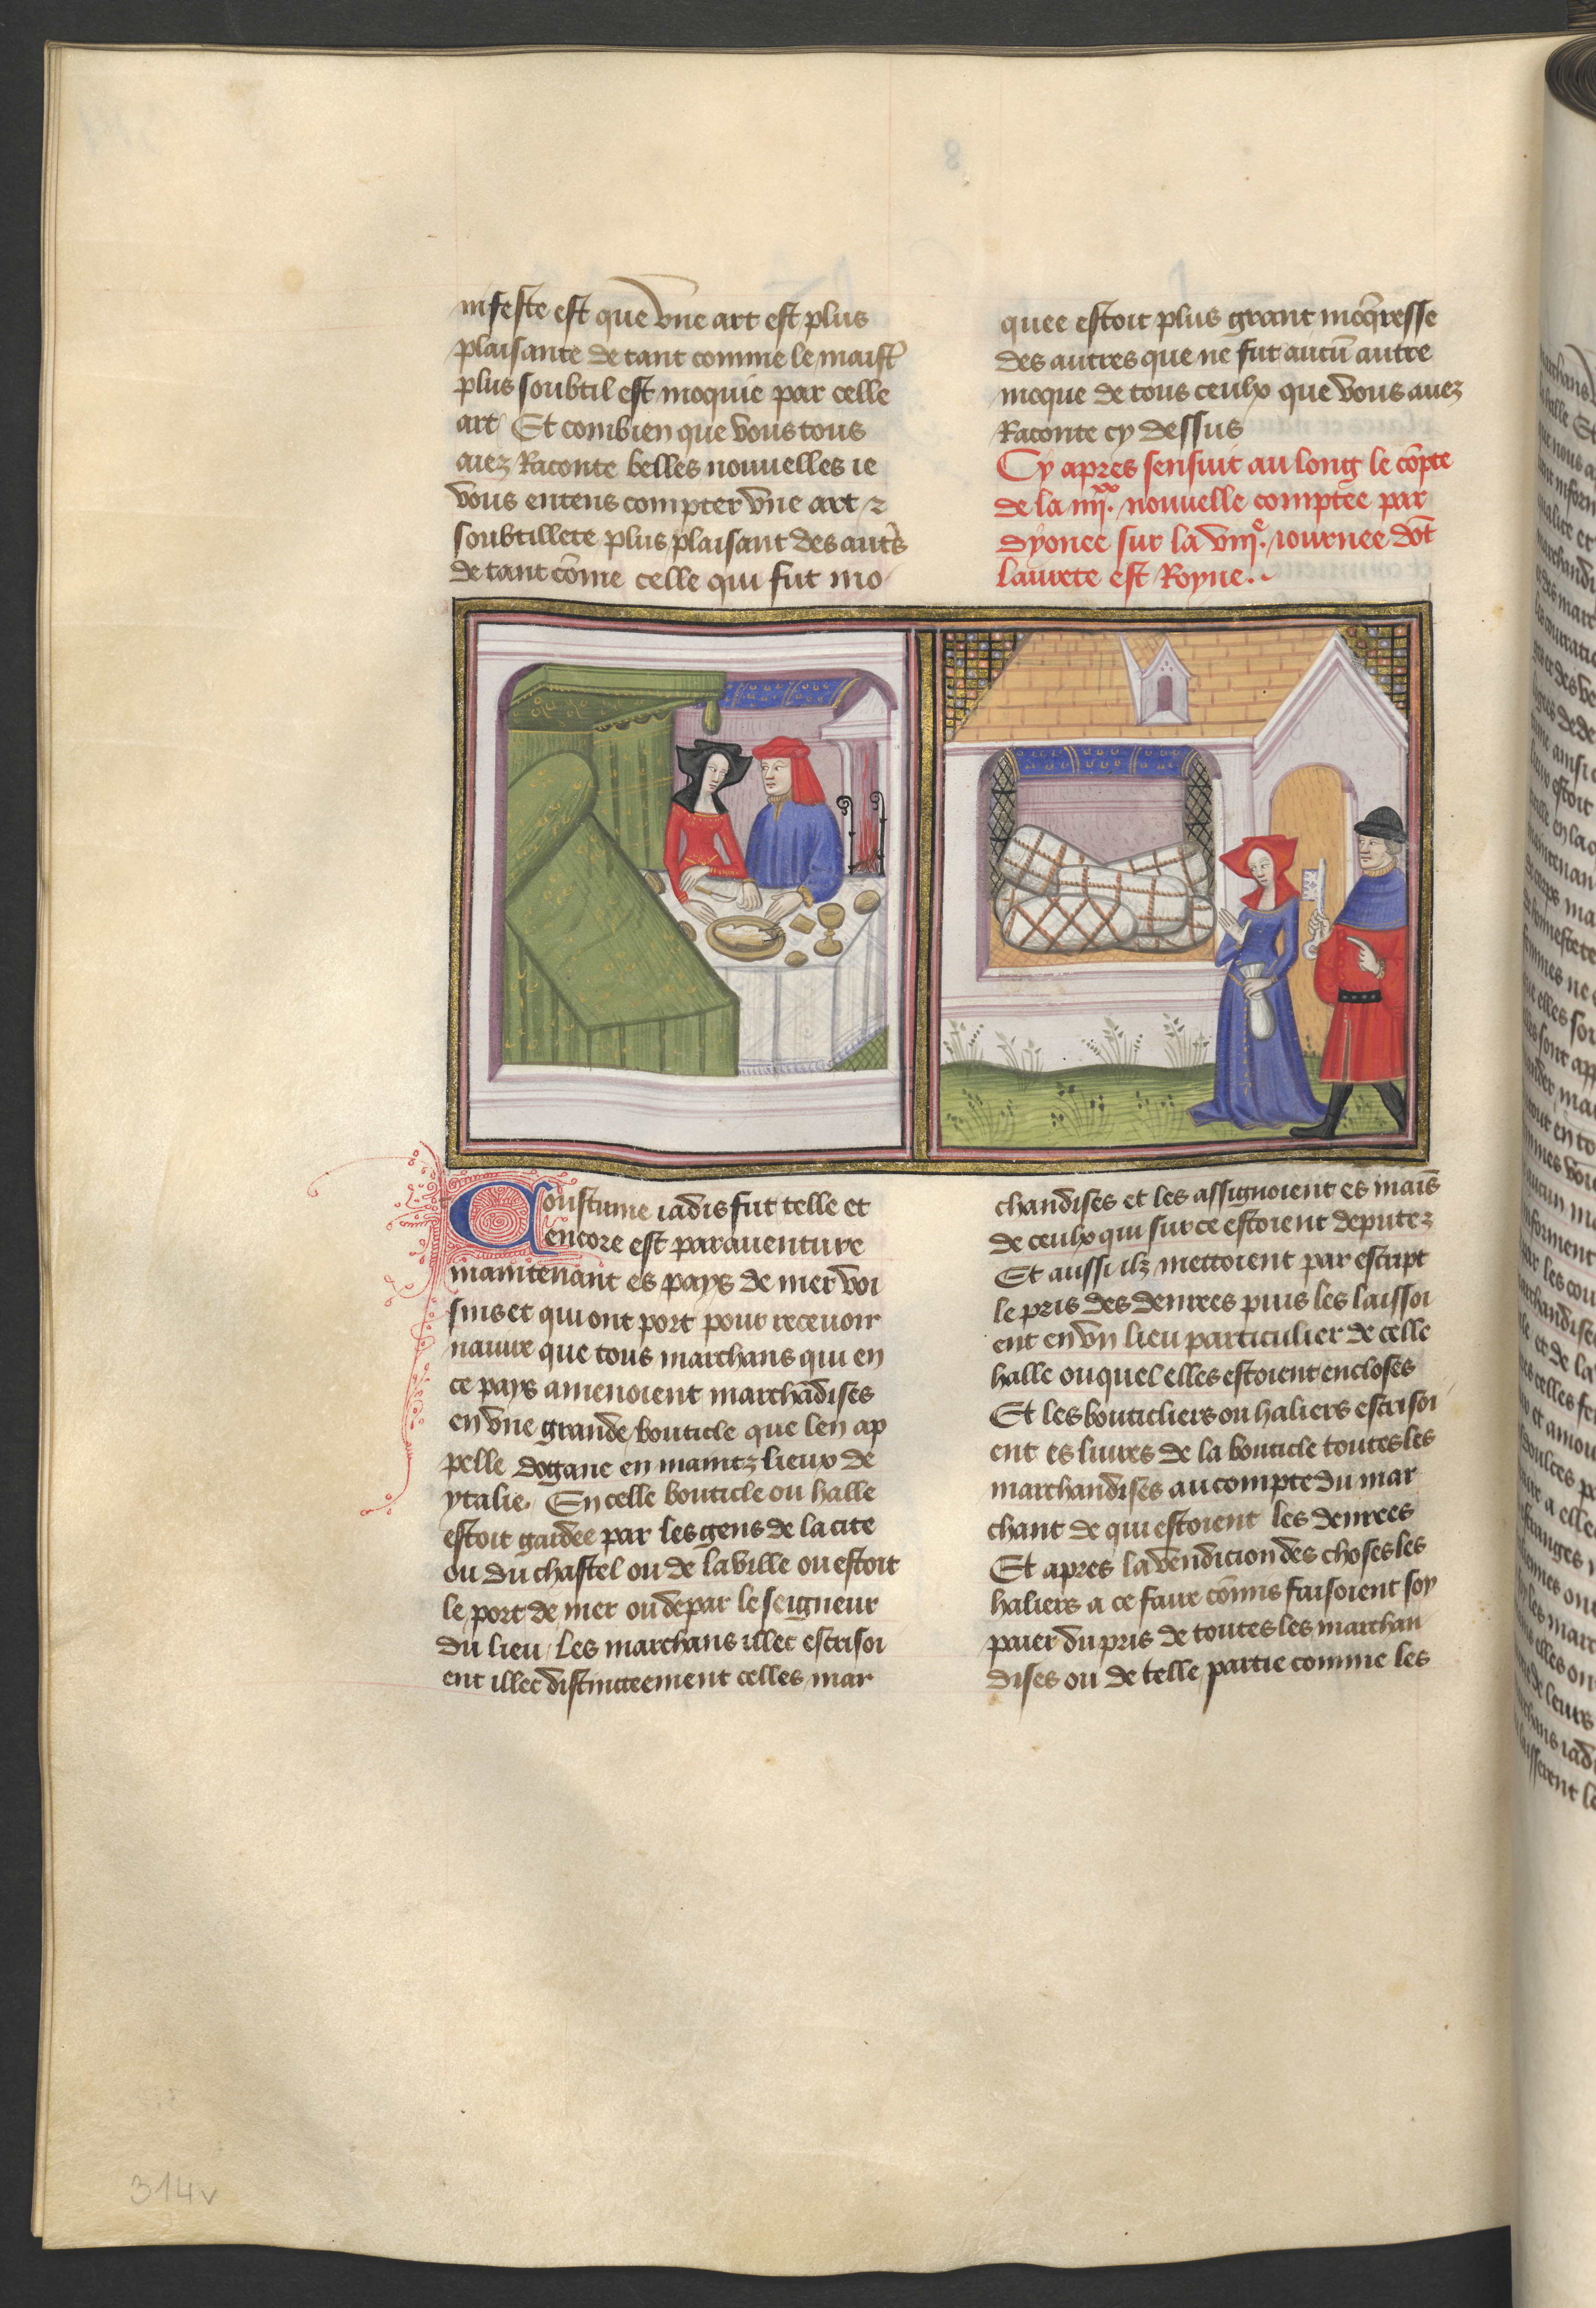 nifeste est que vne art est plus
plaisante de tant comme le maist̄
plus soubtil est moquie par celle
art Et combien que vous tous
aiez Raconte belles nouuelles ie
vous entens compter vne art ⁊
soubtillete plus plaisant des aut̄s
de tant cōme celle qui fut mo
quee estoit plus grant moq̄resse
des autres que ne fut aucū autre
moque de tous ceulx que vous auez
Raconte cy dessus
Cy apres sensuit au long le cōpte
de la iiijxx. nouuelle comptee par
dyonee sur la viije. iournee dōt
laurete est Royne.
Coustume iadis fut telle et
encore est parauenture
maintenant es pays de mer voi
sins et qui ont port pour receuoir
nauire que tous marchans qui en
ce pays amenoient marchādises
en vne grande bouticle que len ap
pelle dogane en maintz lieux de
ytalie. En celle bouticle ou halle
estoit gardee par les gens de la cite
ou du chastel ou de la ville ou estoit
le port de mer ou depar le seigneur
du lieu les marchans illec escrisoi
ent illec distinctement celles mar
chandises et les assignoient es mais̄
de ceulx qui sur ce estoient deputez
Et aussi ilz mettoient par escript
le pris des denrees puis les laissoi
ent en vn lieu particulier de celle
halle ouquel elles estoient encloses
Et les bouticliers ou haliers escrisoi
ent es liures de la bouticle toutes les
marchandises au compte du mar
chant de qui estoient les denrees
Et apres la vendicion des choses les
haliers a ce faire cōmis faisoient soy
paier du pris de toutes les marchan
dises ou de telle partie comme les
314v